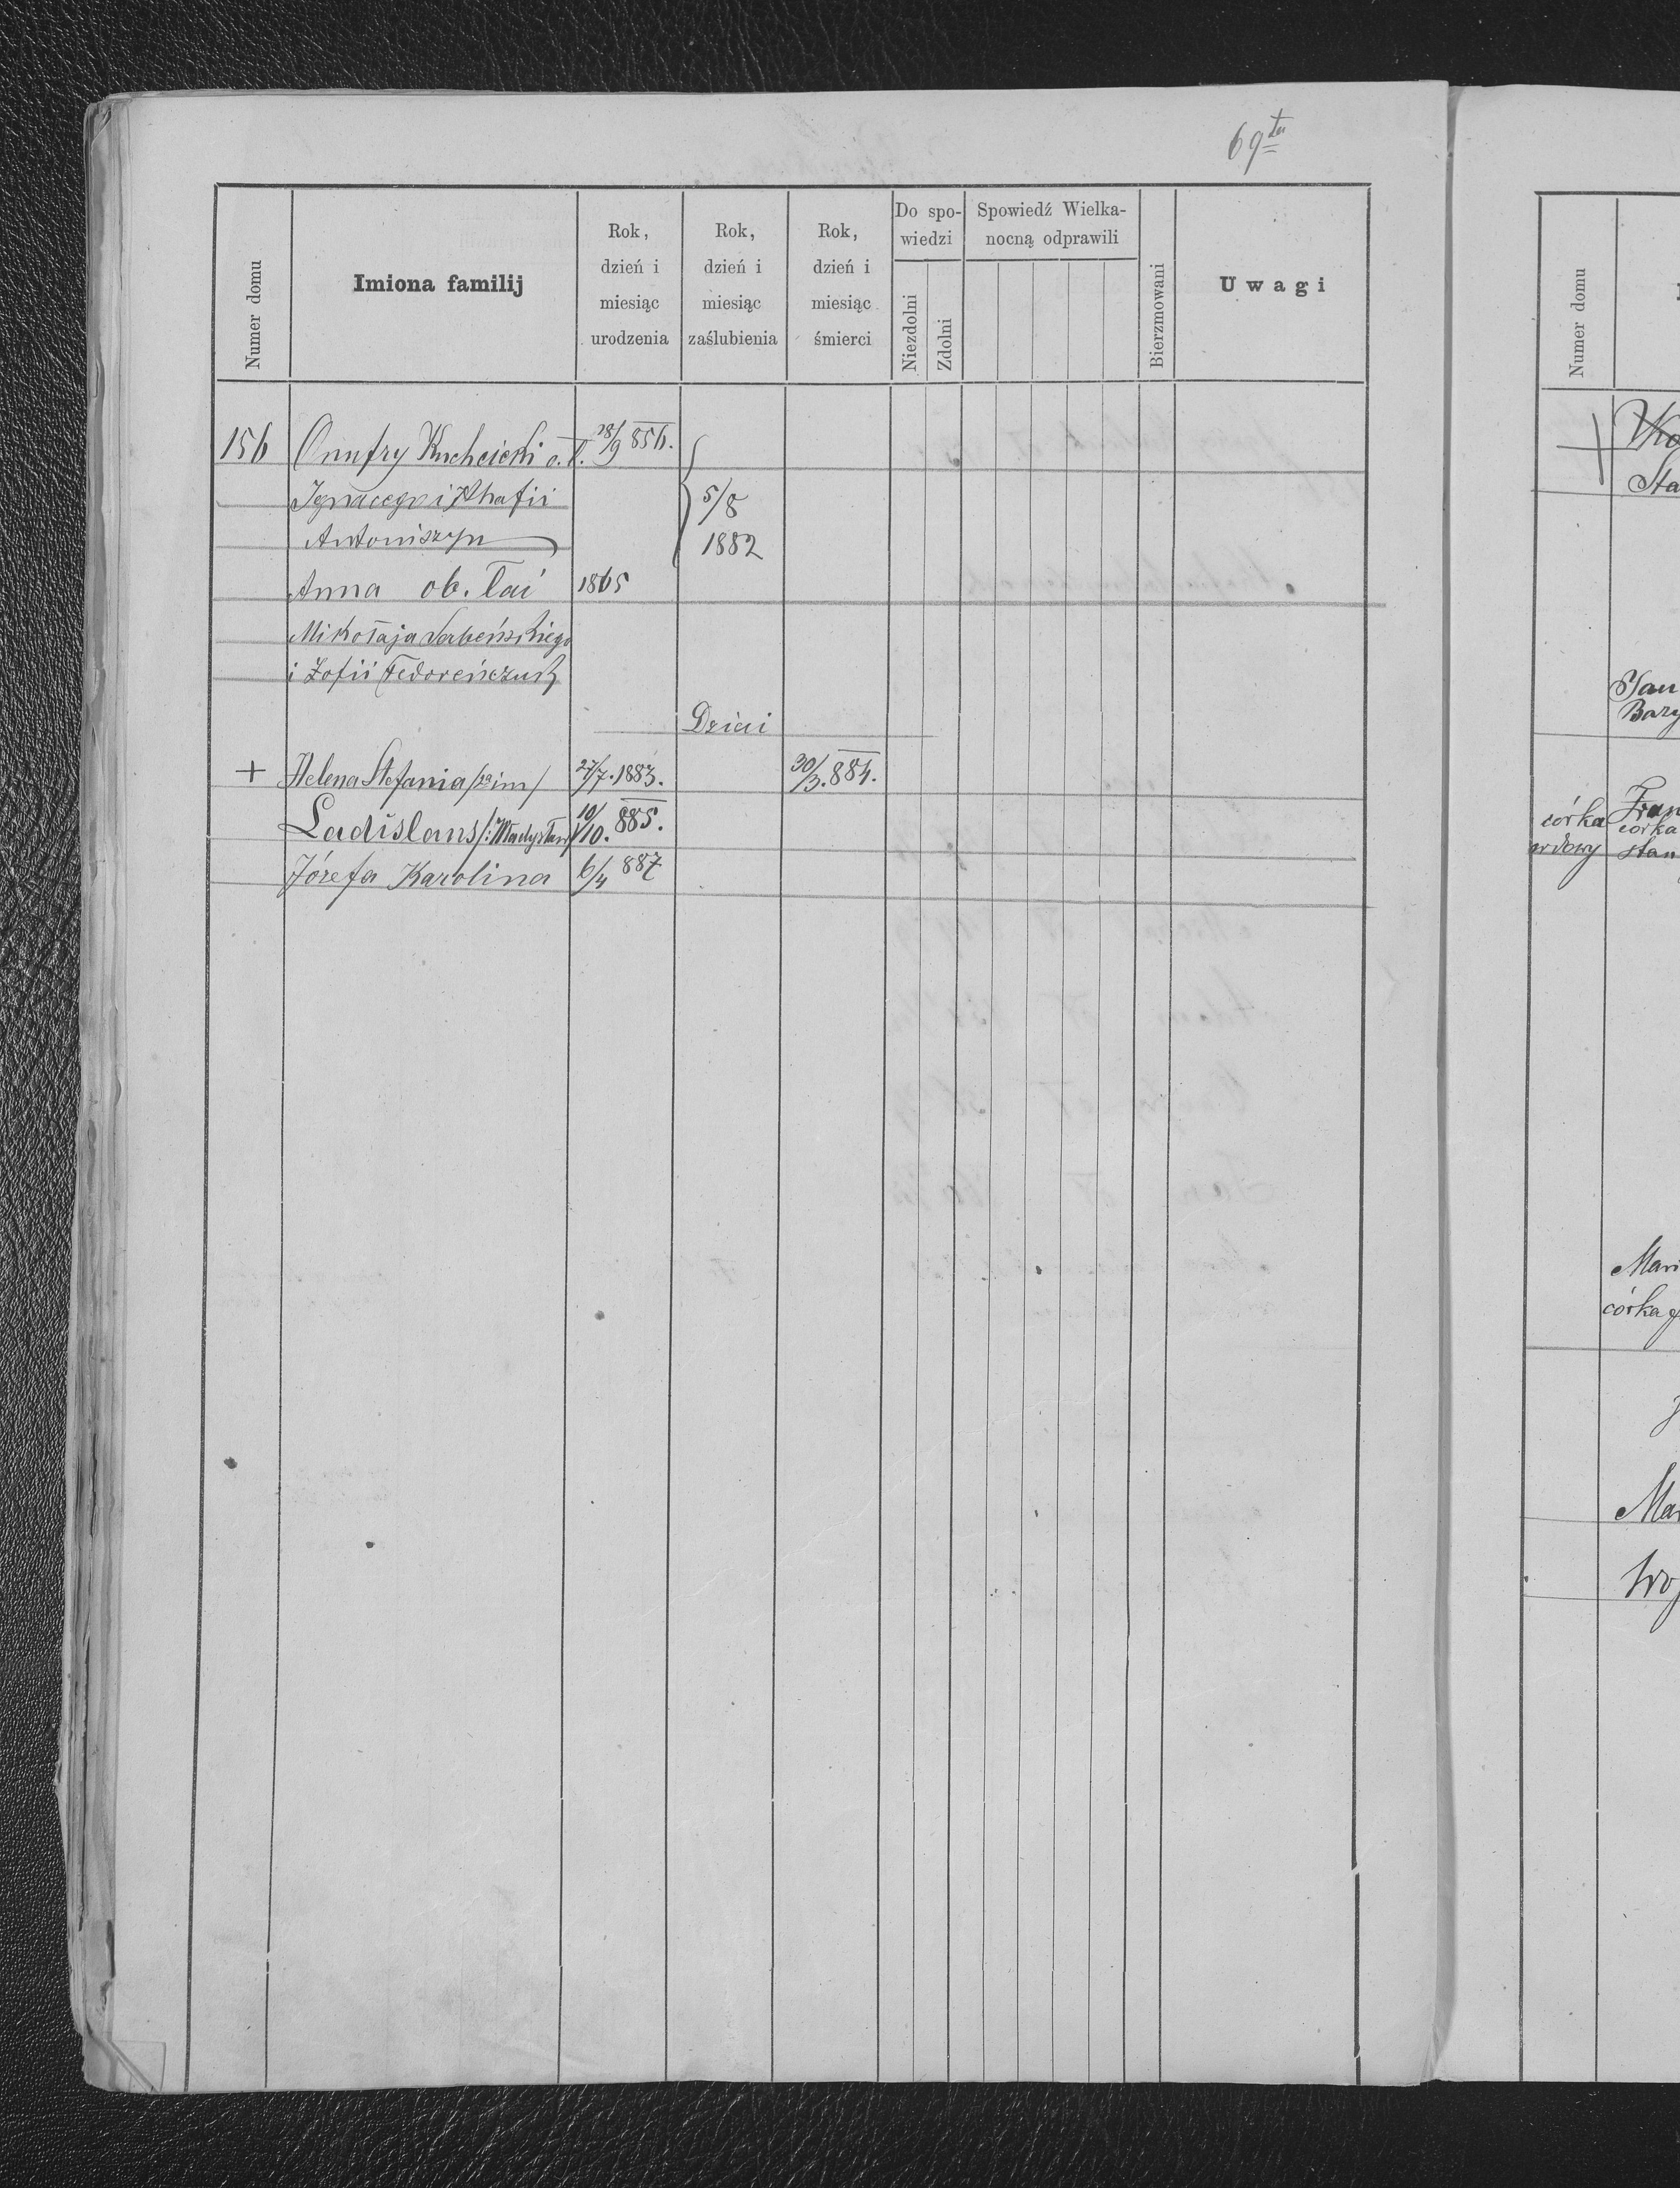 69
Numer domu
Imiona familij
Rok,
dzień i
miesiąc
urodzenia
Rok,
dzień i
miesiąc
zaślubienia
Rok,
dzień i
miesiąc
śmierci
Do spo-
wiedzi
Niezdolni
Zdolni
Spowiedź Wielka-
nocną odprawili
Bierzmowani
Uwagi
156 Onufry Kucheicki o. ł. 28/9 856.
Ignacego i Ahafii 5/8
Antoniszyn 1882
Anna ob. łać 1865
Mikołaja
i Zofii Fedoreńczuk
Dzieci
+ Helena Stefania 27/7. 1883. 30/3. 884.
Ladislaus /: Władysław 10/10. 885.
Józefa Karolina 6/4 887
Numer domu
Sta
Jan
Bazy
córka Fran
córka
wdowy Stan
Mari
córka
Mar